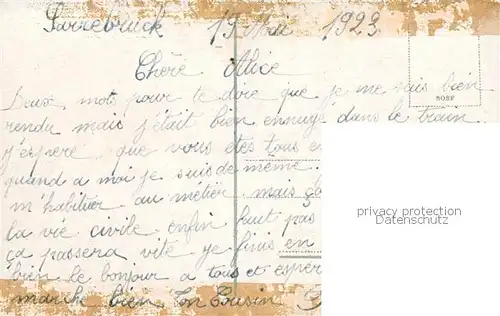 Sarrebruck 19 Mai 1923
Chère Alice
Deux mots pour te dire que je me suis bien
rendu mais j'était bien ennuyé dans le train.
j'espere que vous êtes tous en
quand a moi je suis de même.
m'habituer au métier. mais ça
la vie civile enfin faut pas
ça passera vite je finis en
bien le bonjour a tous et esper
marche bien Ton Cousin
NOBF
privacy protection
www.AnkerVo.com